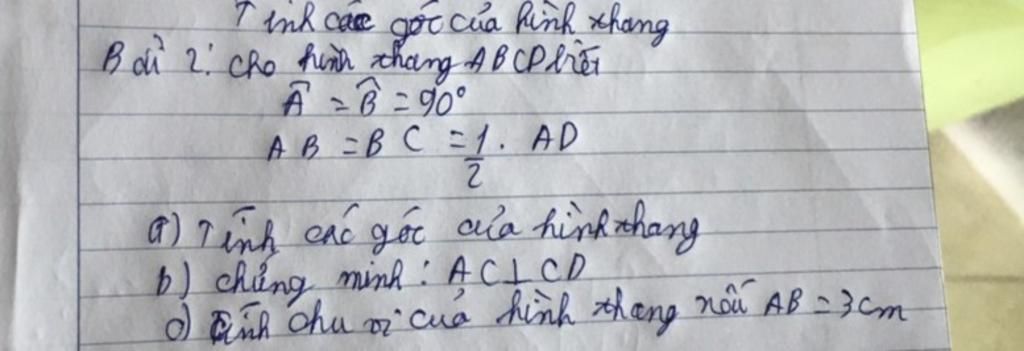 Tính các góc của hình thang
Bài 2: Cho hình thang ABCD biết
Â = B̂ = 90°
AB = BC = 1/2 . AD
a) Tính các góc của hình thang
b) chứng minh: AC ⊥ CD
c) Tính chu vi của hình thang nếu AB = 3cm